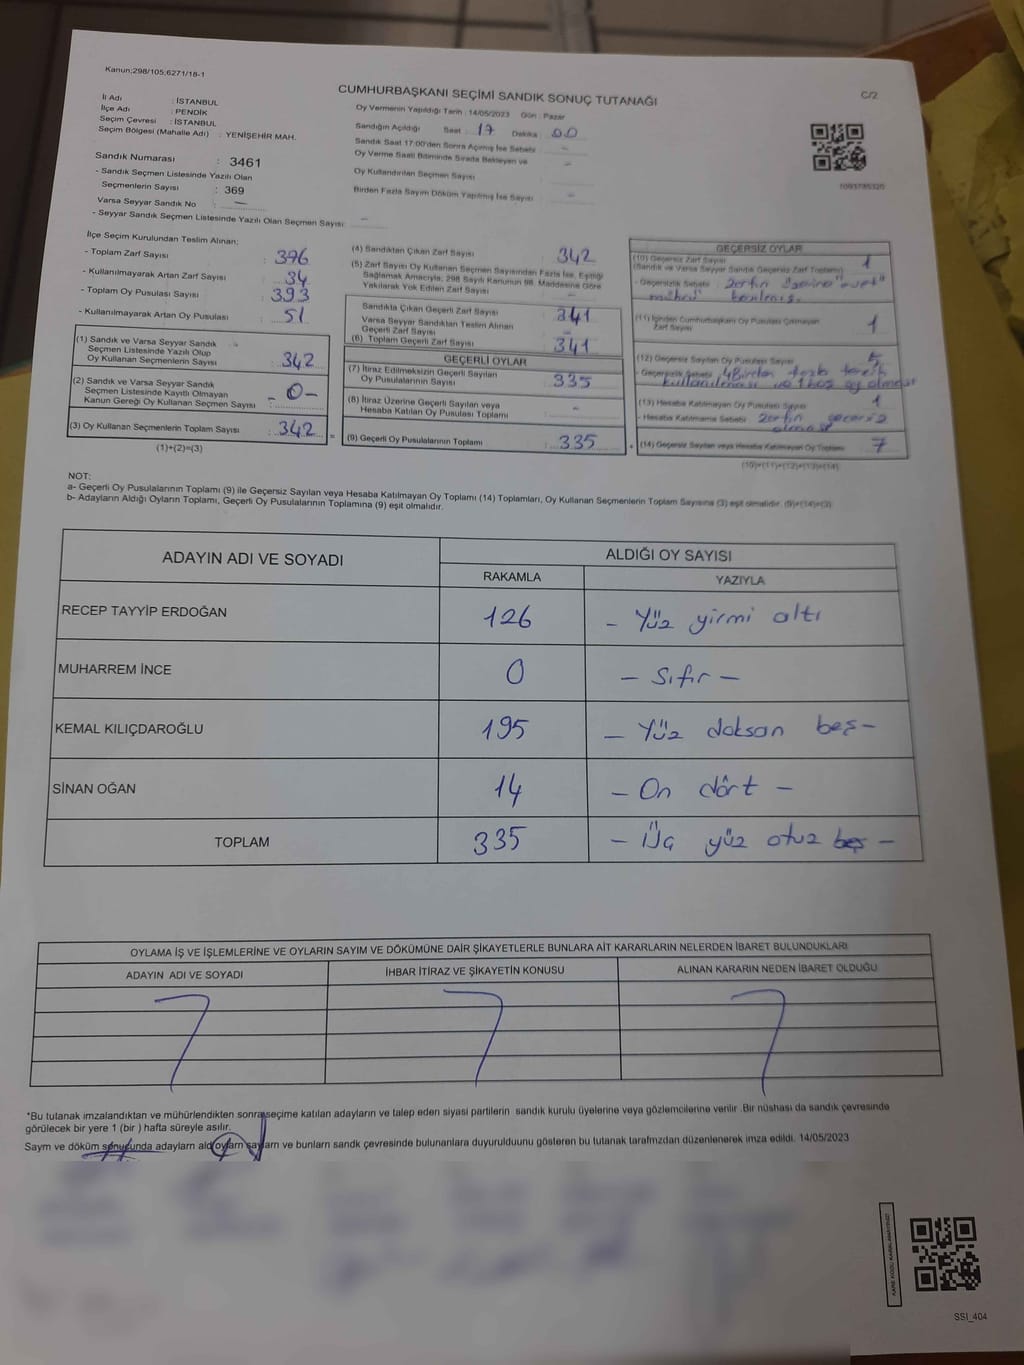 Kanun;298/105;6271/18-1
CUMHURBAŞKANI SEÇİMİ SANDIK SONUÇ TUTANAĞI
C/2
İl Adı : İSTANBUL
İlçe Adı : PENDİK
Seçim Çevresi : İSTANBUL
Seçim Bölgesi (Mahalle Adı) : YENİŞEHİR MAH.
Oy Vermenin Yapıldığı Tarih : 14/05/2023 Gün : Pazar
Sandığın Açıldığı Saat : 17 Dakika : 00
Sandık Saat 17:00'den Sonra Açımış İse Sebebi : -
Oy Verme Saati Bitiminde Sırada Bekleyen ve
Oy Kullandırılan Seçmen Sayısı : -
Birden Fazla Sayım Döküm Yapılmış İse Sayısı : -
1093785320
Sandık Numarası : 3461
- Sandık Seçmen Listesinde Yazılı Olan
Seçmenlerin Sayısı : 369
Varsa Seyyar Sandık No : -
- Seyyar Sandık Seçmen Listesinde Yazılı Olan Seçmen Sayısı: -
İlçe Seçim Kurulundan Teslim Alınan;
- Toplam Zarf Sayısı : 376
- Kullanılmayarak Artan Zarf Sayısı : 34
- Toplam Oy Pusulası Sayısı : 393
- Kullanılmayarak Artan Oy Pusulası : 51
(1) Sandık ve Varsa Seyyar Sandık
Seçmen Listesinde Yazılı Olup
Oy Kullanan Seçmenlerin Sayısı : 342
(2) Sandık ve Varsa Seyyar Sandık
Seçmen Listesinde Kayıtlı Olmayan
Kanun Gereği Oy Kullanan Seçmen Sayısı : -0-
(3) Oy Kullanan Seçmenlerin Toplam Sayısı : 342
(1)+(2)=(3)
(4) Sandıktan Çıkan Zarf Sayısı : 342
(5) Zarf Sayısı Oy Kullanan Seçmen Sayısından Fazla İse, Eşitliği
Sağlamak Amacıyla; 298 Sayılı Kanunun 98. Maddesine Göre
Yakılarak Yok Edilen Zarf Sayısı : -
Sandıkla Çıkan Geçerli Zarf Sayısı : 341
Varsa Seyyar Sandıktan Teslim Alınan
Geçerli Zarf Sayısı : -
(6) Toplam Geçerli Zarf Sayısı : 341
GEÇERLİ OYLAR
(7) İtiraz Edilmeksizin Geçerli Sayılan
Oy Pusulalarının Sayısı : 335
(8) İtiraz Üzerine Geçerli Sayılan veya
Hesaba Katılan Oy Pusulası Toplamı : -
(9) Geçerli Oy Pusulalarının Toplamı : 335
GEÇERSİZ OYLAR
(10) Geçersiz Zarf Sayısı : 1
(Sandık ve Varsa Seyyar Sandık Geçersiz Zarf Toplamı)
- Geçersizlik Sebebi : Zarfın üzerine "evet"
mührü basılmış.
(11) İçinden Cumhurbaşkanı Oy Pusulası Çıkmayan
Zarf Sayısı : 1
(12) Geçersiz Sayılan Oy Pusulası Sayısı : 5
- Geçersizlik Sebebi : 4 Birden fazla tercih
kullanılması ve 1 boş oy olması
(13) Hesaba Katılmayan Oy Pusulası Sayısı : 1
- Hesaba Katılmama Sebebi : Zarfın geçersiz
olması
(14) Geçersiz Sayılan veya Hesaba Katılmayan Oy Toplamı : 7
(10)+(11)+(12)+(13)=(14)
NOT:
a- Geçerli Oy Pusulalarının Toplamı (9) ile Geçersiz Sayılan veya Hesaba Katılmayan Oy Toplamı (14) Toplamları, Oy Kullanan Seçmenlerin Toplam Sayısına (3) eşit olmalıdır. (9)+(14)=(3)
b- Adayların Aldığı Oyların Toplamı, Geçerli Oy Pusulalarının Toplamına (9) eşit olmalıdır.
ADAYIN ADI VE SOYADI ALDIĞI OY SAYISI
RAKAMLA YAZIYLA
RECEP TAYYİP ERDOĞAN 126 - Yüz yirmi altı
MUHARREM İNCE 0 - Sıfır -
KEMAL KILIÇDAROĞLU 195 - Yüz doksan beş -
SİNAN OĞAN 14 - On dört -
TOPLAM 335 - Üç yüz otuz beş -
OYLAMA İŞ VE İŞLEMLERİNE VE OYLARIN SAYIM VE DÖKÜMÜNE DAİR ŞİKAYETLERLE BUNLARA AİT KARARLARIN NELERDEN İBARET BULUNDUKLARI
ADAYIN ADI VE SOYADI İHBAR İTİRAZ VE ŞİKAYETİN KONUSU ALINAN KARARIN NEDEN İBARET OLDUĞU
*Bu tutanak imzalandıktan ve mühürlendikten sonra seçime katılan adayların ve talep eden siyasi partilerin sandık kurulu üyelerine veya gözlemcilerine verilir .Bir nüshası da sandık çevresinde
görülecek bir yere 1 (bir ) hafta süreyle asılır.
Sayım ve döküm sonucunda adayların ald oyların sayıları ve bunların sandk çevresinde bulunanlara duyurulduunu gösteren bu tutanak tarafmzdan düzenlenerek imza edildi. 14/05/2023
SSI_404